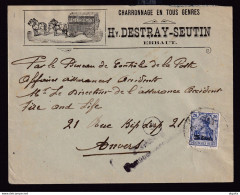 CHARRONNAGE EN TOUS GENRES
Hri. DESTRAY-SEUTIN
ERBAUT.
Par le Bureau de Contrôle de la Poste
Affaires assurances Accidents
Mr Le Directeur de l'assurance Accident
Fire and Life
21 Rue 21
Anvers